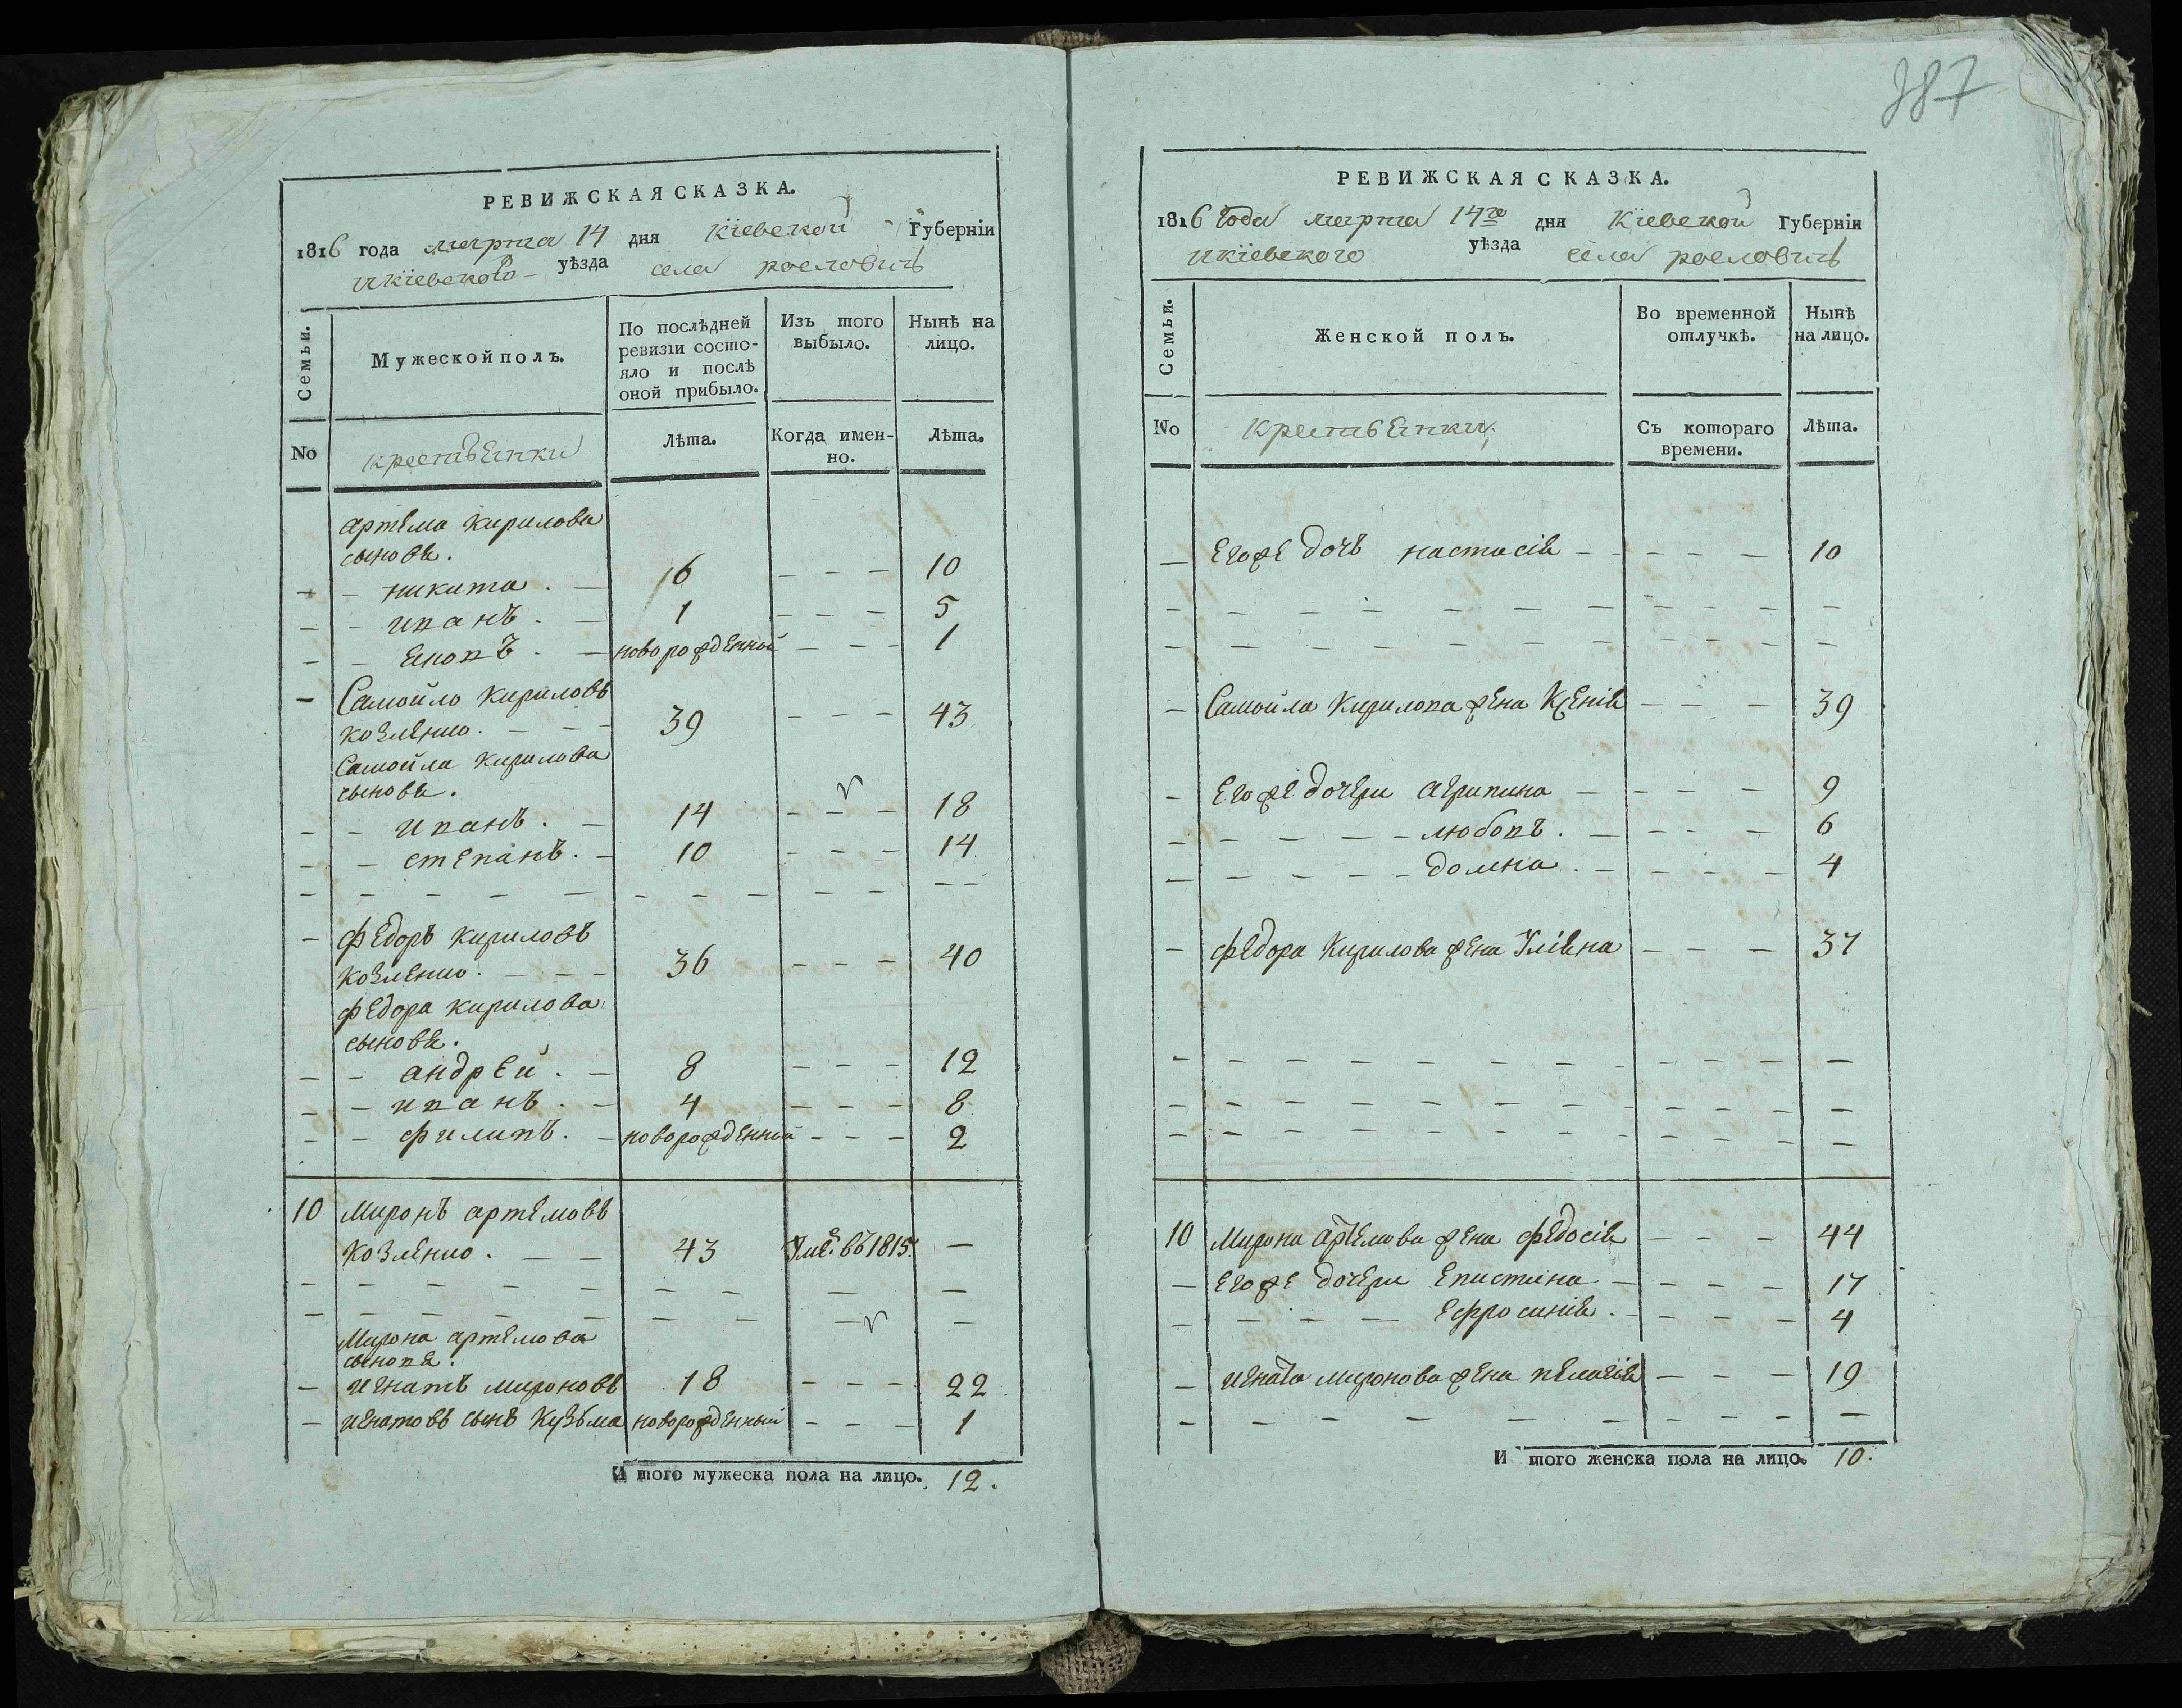 РЕВИЖСКАЯ СКАЗКА.
1816 года марта 14 дня Кіевской Губерніи
икіевского уѣзда села рославичь
Семьи.
Мужеской полъ.
По послѣдней ревизіи состояло и послѣ оной прибыло.
Изъ того выбыло.
Нынѣ на лицо.
No
крестьяники
Лѣта.
Когда именно.
Лѣта.
артема кирилова
сыновя.
– – никита . – 16 – – – 10
– – иванъ . – 1 – – – 5
– – яковъ . – новорожденный – – – 1
– Самойло кириловъ
козленко . – – 39 – – – 43
Самойла кирилова
сыновя.
– – иванъ . – 14 – – – 18
– – степанъ . – 10 – – – 14
– – – – – – – – – – – –
– федоръ кириловъ
козленко . – – – 36 – – – 40
федора кирилова
сыновя.
– – андрей . – 8 – – – 12
– – иванъ . – 4 – – – 8
– – филипъ . – новорожденный – – – 2
10 миронъ артемовъ
козленко . – – 43 Уме: въ 1815. –
– – – – – – – – –
– – – – – – – – –
мирона артемова
сыновя.
– игнатъ мироновъ 18 – – – 22
– игнатовъ сынъ кузьма новорожденный – – – 1
И того мужеска пола на лицо. 12.
387
РЕВИЖСКАЯ СКАЗКА.
1816 года марта 14го дня Кіевской Губерніи
икіевского уѣзда села рославичь
Семьи.
Женской полъ.
Во временной отлучкѣ.
Нынѣ на лицо.
No
крестьянки
Съ котораго времени.
Лѣта.
– Егоже дочь настасія – – – – 10
– – – – – – – – – – – –
– – – – – – – – – – – –
– Самойла Кирилова жена Ксенія – – – 39
– Егоже дочери агрипина – – – – 9
– – – – – любовъ . – – – – 6
– – – – – домна . – – – – 4
– федора Кирилова жена Уліяна – – – 37
– – – – – – – – – – – –
– – – – – – – – – – – –
– – – – – – – – – – – –
10 Мирона артемова жена федосія – – – 44
– Егоже дочери Епистина – – – – 17
– – – – Ефросинія . – – – – 4
– игната миронова жена пелагія – – – 19
– – – – – – – – – – –
И того женска пола на лицо. 10.